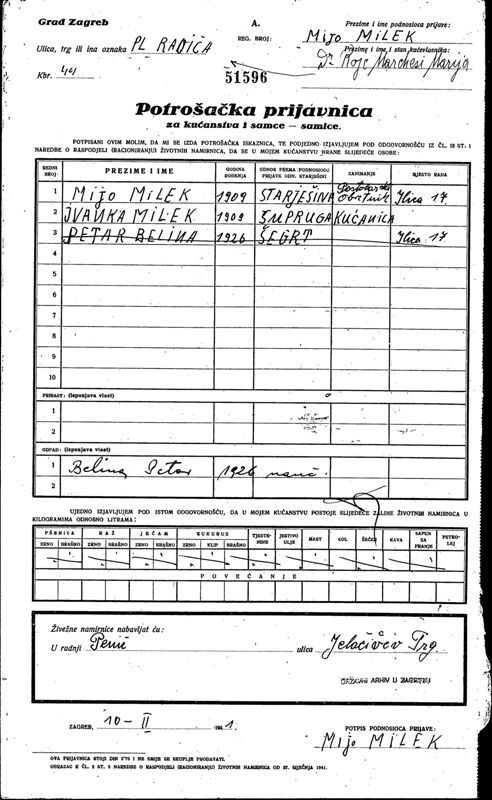 Grad Zagreb
A.
Prezime i ime podnosioca prijave:
Ulica, trg ili ina oznaka PL RADIĆA
REG. BROJ:
Mijo MILEK
Prezime i ime i stan kućevlasnika:
Kbr.
51596
Dr Roje Marchesi Marija
Potrošačka prijavnica
za kućanstva i samce — samice.
POTPISANI OVIM MOLIM, DA MI SE IZDA POTROŠAČKA ISKAZNICA, TE PODJEDNO IZJAVLJUJEM POD ODGOVORNOŠĆU IZ ČL. 18 ST. 1
NAREDBE O RASPODJELI (RACIONIRANJU) ŽIVOTNIH NAMIRNICA, DA SE U MOJEM KUĆANSTVU HRANE SLIJEDEĆE OSOBE:
REDNI BROJ: PREZIME I IME GODINA ROĐENJA ODNOS PREMA PODNOSIOCU PRIJAVE ODN. STARJEŠINI ZANIMANJE MJESTO RADA
1 Mijo MILEK 1909 STARJEŠINA Postolarski obrtnik Ilica 17
2 IVANKA MILEK 1909 SUPRUGA KUĆANICA
3 PETAR BELINA 1926 ŠEGRT Ilica 17
4
5
6
7
8
9
10
PRIRAST: (ispunjava vlast)
1
2
OTPAD: (ispunjava vlast)
1 Belina Petar 1926
2
UJEDNO IZJAVLJUJEM POD ISTOM ODGOVORNOŠĆU, DA U MOJEM KUĆANSTVU POSTOJE SLIJEDEĆE ZALIHE ŽIVOTNIH NAMIRNICA U
KILOGRAMIMA ODNOSNO LITRAMA:
PŠENICA RAŽ JEČAM KUKURUZ TJESTENINE JESTIVO ULJE MAST SOL ŠEĆER KAVA SAPUN ZA PRANJE PETROLEJ
ZRNO BRAŠNO ZRNO BRAŠNO ZRNO BRAŠNO ZRNO KLIP BRAŠNO
POVEĆANJE
Živežne namirnice nabavljat ću:
U radnji Penić ulica Jelačićev Trg.
DRŽAVNI ARHIV U ZAGREBU
ZAGREB, 10-II 1941.
POTPIS PODNOSIOCA PRIJAVE:
Mijo MILEK
OVA PRIJAVNICA STOJI DIN 0'75 I NE SMIJE SE SKUPLJE PRODAVATI.
OBRAZAC K ČL. 2 ST. 5 NAREDBE O RASPODJELI (RACIONIRANJU) ŽIVOTNIH NAMIRNICA OD 27. SIJEČNJA 1941.